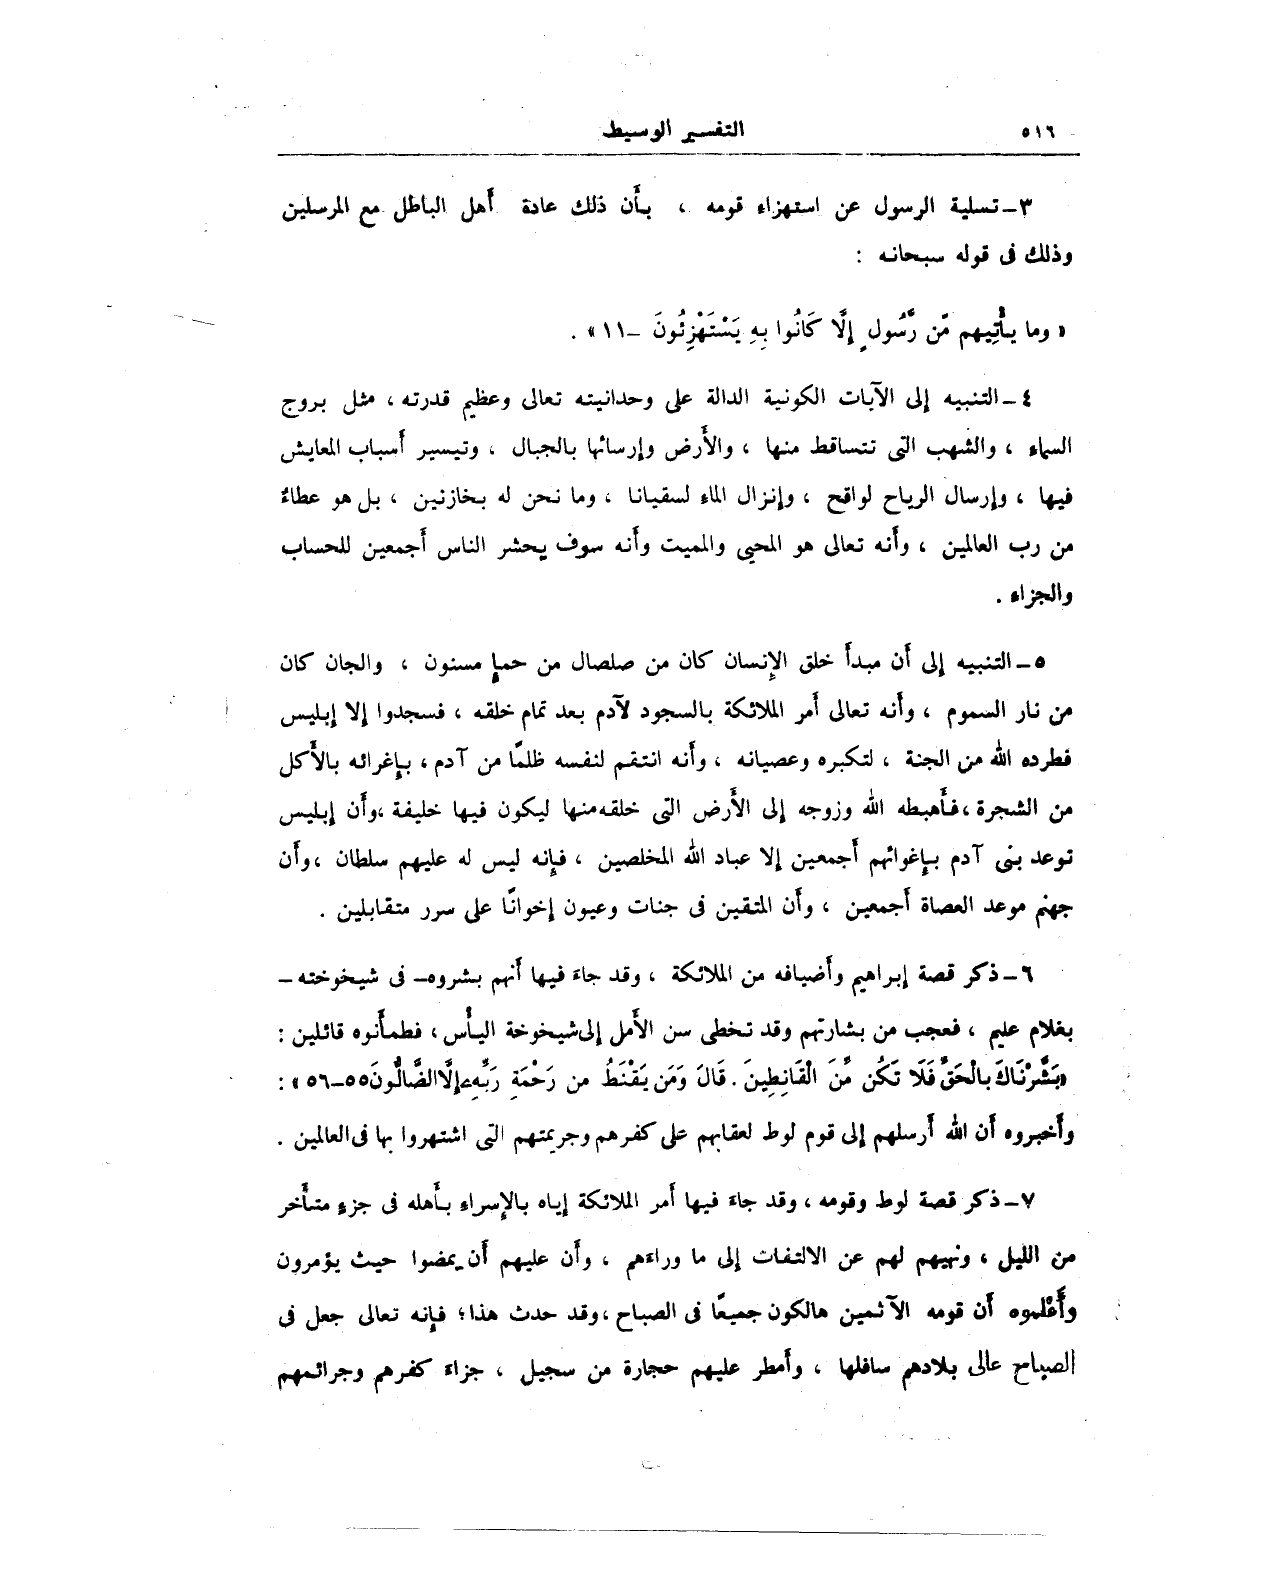 ٥١٦ التفسير الوسيط
٣ــ تسلية الرسول عن استهزاء قومه ، بأن ذلك عادة أهل الباطل مع المرسلين
وذلك فى قوله سبحانه :
« وما يأْتِيهم مّن رَّسُولٍ إِلَّا كَانُوا بِهِ يَسْتَهْزِئُونَ ــ١١» .
٤ ــ التنبيه إلى الآيات الكونية الدالة على وحدانيته تعالى وعظيم قدرته ، مثل بروج
السماء ، والشهب التى تتساقط منها ، والأَرض وإرسائها بالجبال ، وتيسير أسباب المعايش
فيها ، وإرسال الرياح لواقح ، وإنزال الماء لسقيانا ، وما نحن له بخازنين ، بل هو عطاءُ
من رب العالمين ، وأنه تعالى هو المحيى والمميت وأنه سوف يحشر الناس أجمعين للحساب
والجزاء .
٥ ــ التنبيه إلى أن مبدأ خلق الإنسان كان من صلصال من حمإ مسنون ، والجان كان
من نار السموم ، وأنه تعالى أمر الملائكة بالسجود لآدم بعد تمام خلقه ، فسجدوا إلا إبليس
فطرده الله من الجنة ، لتكبره وعصيانه ، وأنه انتقم لنفسه ظلمًا من آدم ، بإغرائه بالأَكل
من الشجرة ، فأهبطه الله وزوجه إلى الأَرض التى خلقه منها ليكون فيها خليفة ،وأن إبليس
توعد بنى آدم بإغوائهم أجمعين إلا عباد الله المخلصين ، فإنه ليس له عليهم سلطان ،وأن
جهنم موعد العصاة أجمعين ، وأن المتقين فى جنات وعيون إخوانًا على سرر متقابلين .
٦ ــ ذكر قصة إبراهيم وأضيافه من الملائكة ، وقد جاءَ فيها أنهم بشروه ــ فى شيخوخته ــ
بغلام عليم ، فعجب من بشارتهم وقد تخطى سن الأَمل إلى شيخوخة اليأْس ، فطمأنوه قائلين :
«بَشَّرْنَاكَ بالْحَقِّ فَلَا تَكُن مِّنَ الْقَانِطِينَ . قَالَ وَمَن يَقْنَطُ من رَحْمَةِ رَبِّهِ إِلَّا الضَّالُّونَ ٥٥ــ٥٦» :
وأخبروه أن الله أرسلهم إلى قوم لوط لعقابهم على كفرهم وجريمتهم التى اشتهروا بها فى العالمين .
٧ ــ ذكر قصة لوط وقومه ، وقد جاءَ فيها أمر الملائكة إياه بالإسراء بأهله فى جزءٍ متأَخر
من الليل ، ونهيهم لهم عن الالتفات إلى ما وراءَهم ، وأن عليهم أن يمضوا حيث يؤمرون
وأَعْلموه أن قومه الآثمين هالكون جميعًا فى الصباح ،وقد حدث هذا ؛ فإنه تعالى جعل فى
الصباح عالى بلادهم سافلها ، وأمطر عليهم حجارة من سجيل ، جزاءَ كفرهم وجرائمهم